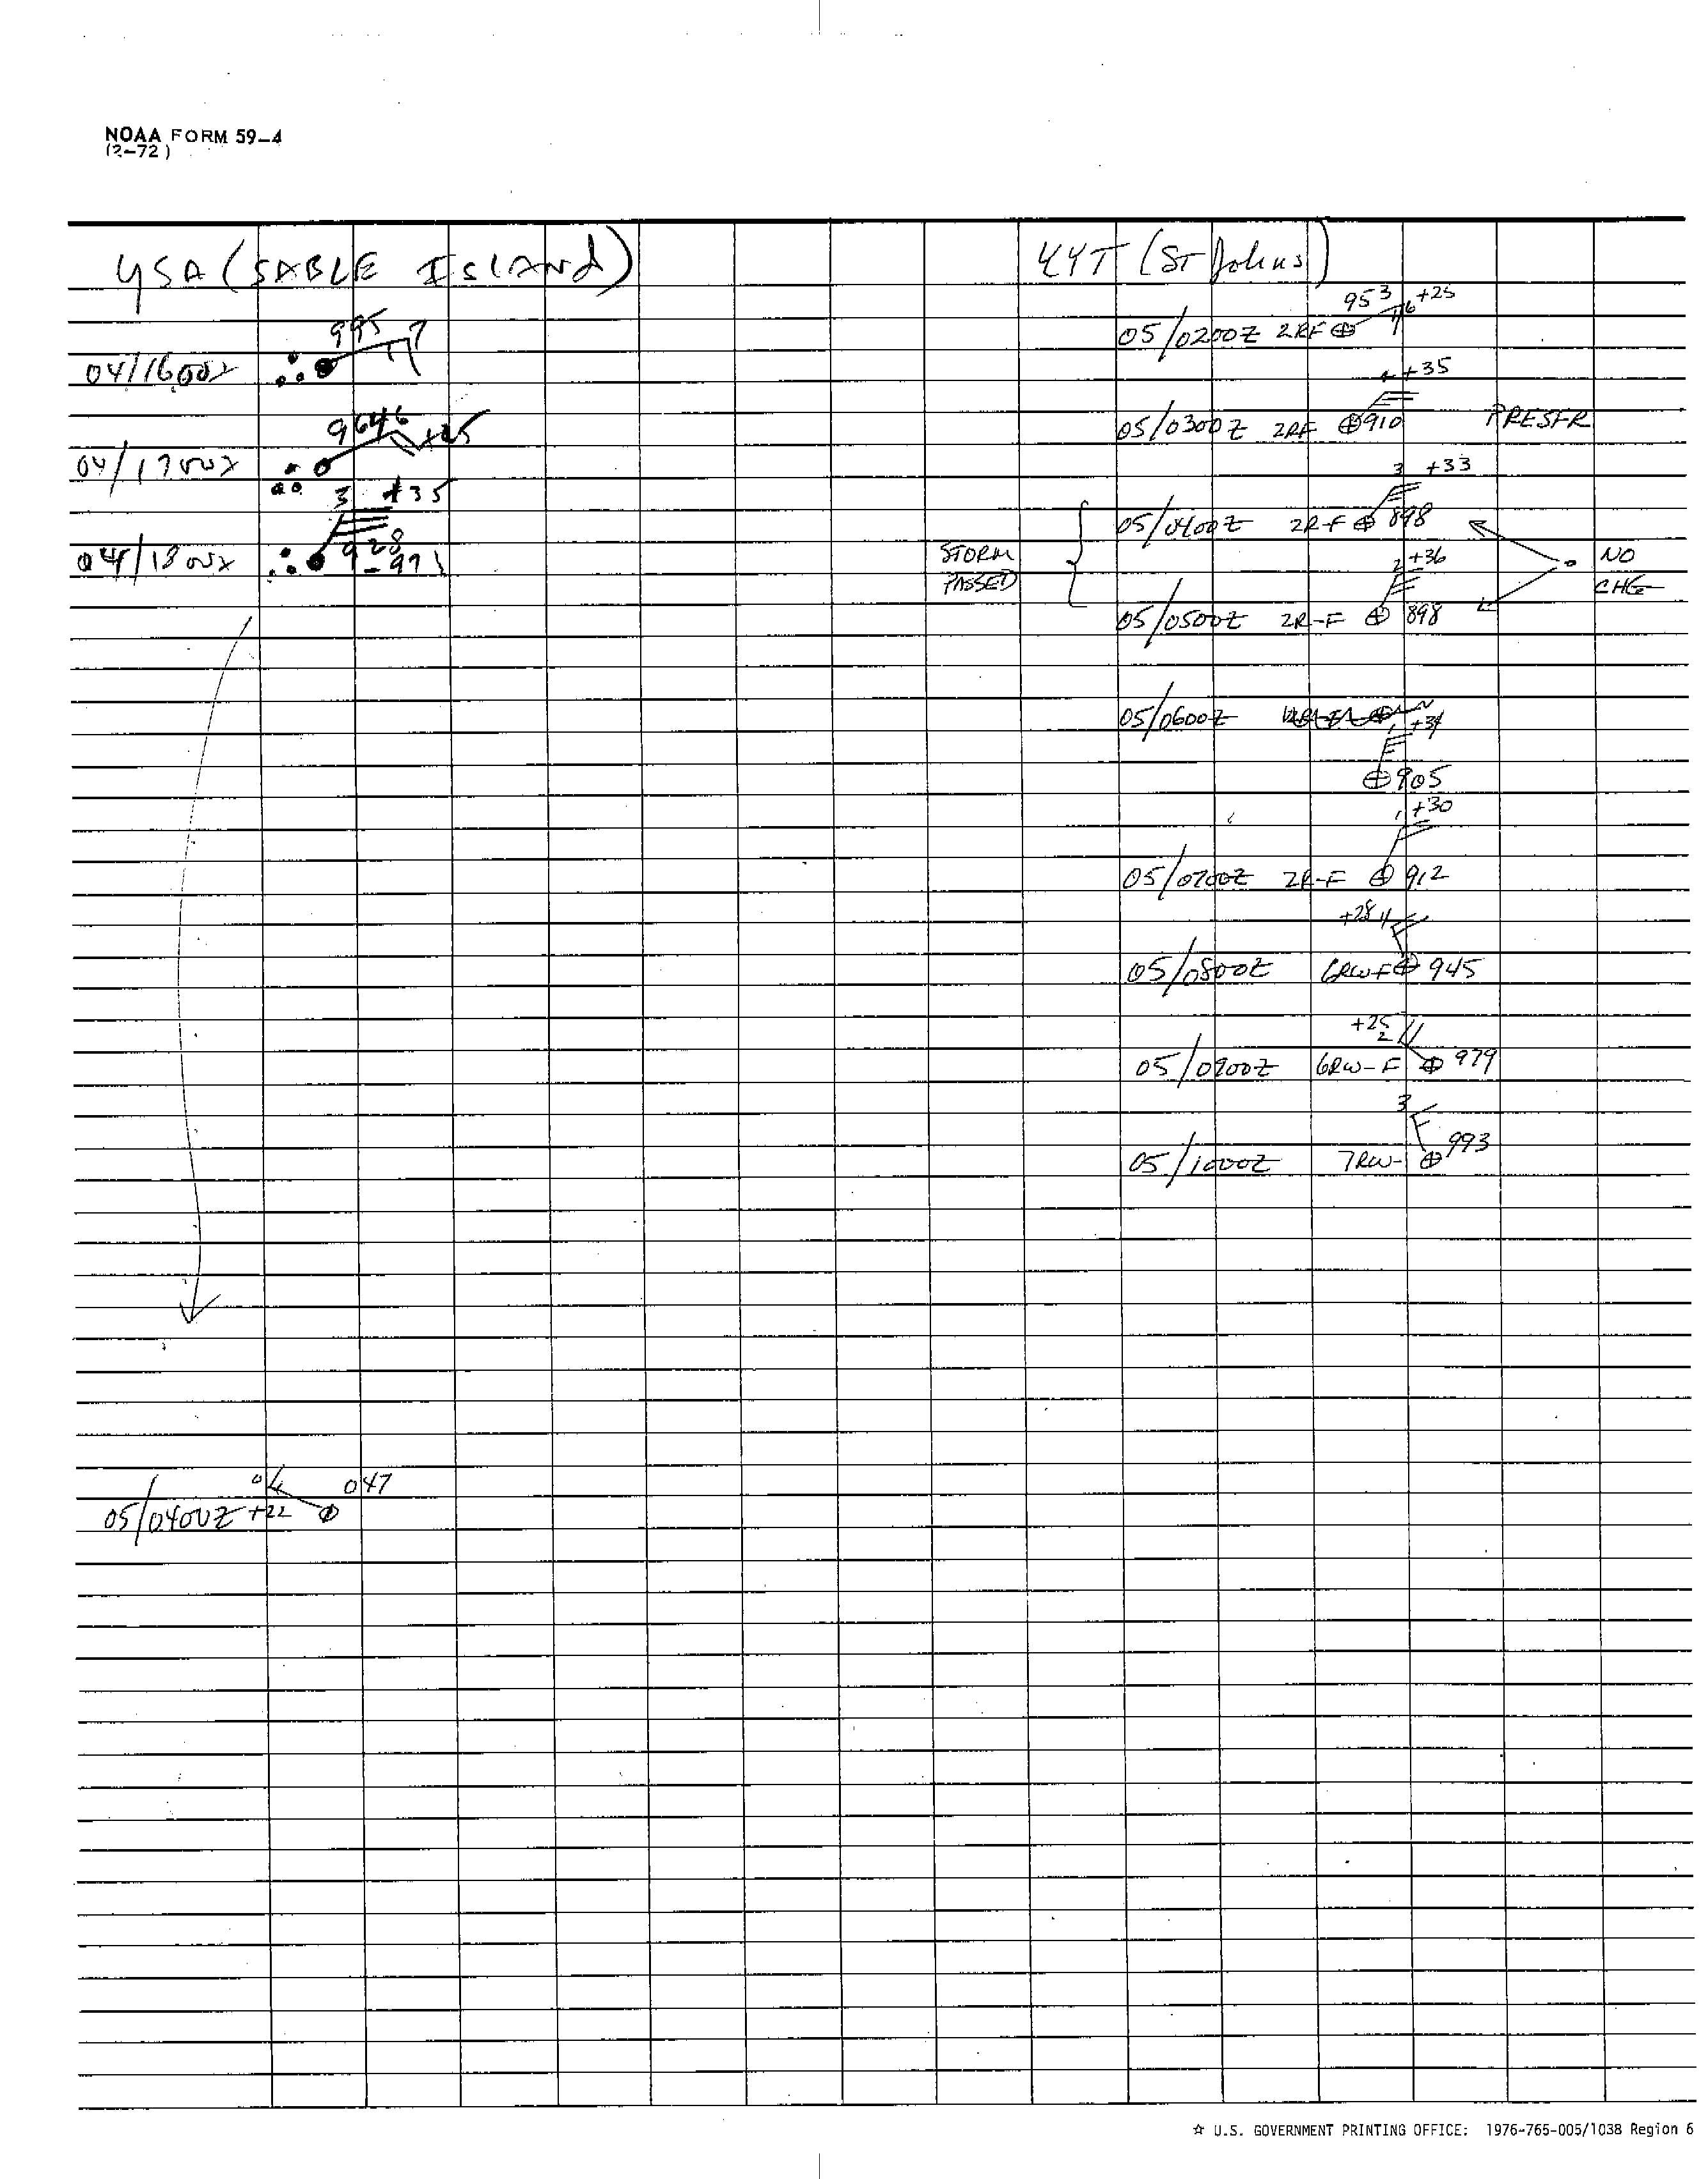 NOAA FORM 59-4
(2-72)
YSA (SABLE ISLAND)
995
04/1600Z
9646
+25
04/1700Z
3 +35
04/1800Z 928
-971
04 047
05/0400Z +22
YYT (St Johns)
953 +25
05/0200Z 2RF
+35
05/0300Z 2RF 910 PRESFR
3 +33
05/0400Z 2R-F 898
STORM
PASSED
NO
CHG
2 +36
05/0500Z 2R-F 898
05/0600Z
+34
905
+30
05/0700Z 2R-F 912
+28
05/0800Z 6RW-F 945
+25
2
05/0900Z 6RW-F 979
3
05/1000Z 7RW- 993
☆ U.S. GOVERNMENT PRINTING OFFICE: 1976-765-005/1038 Region 6